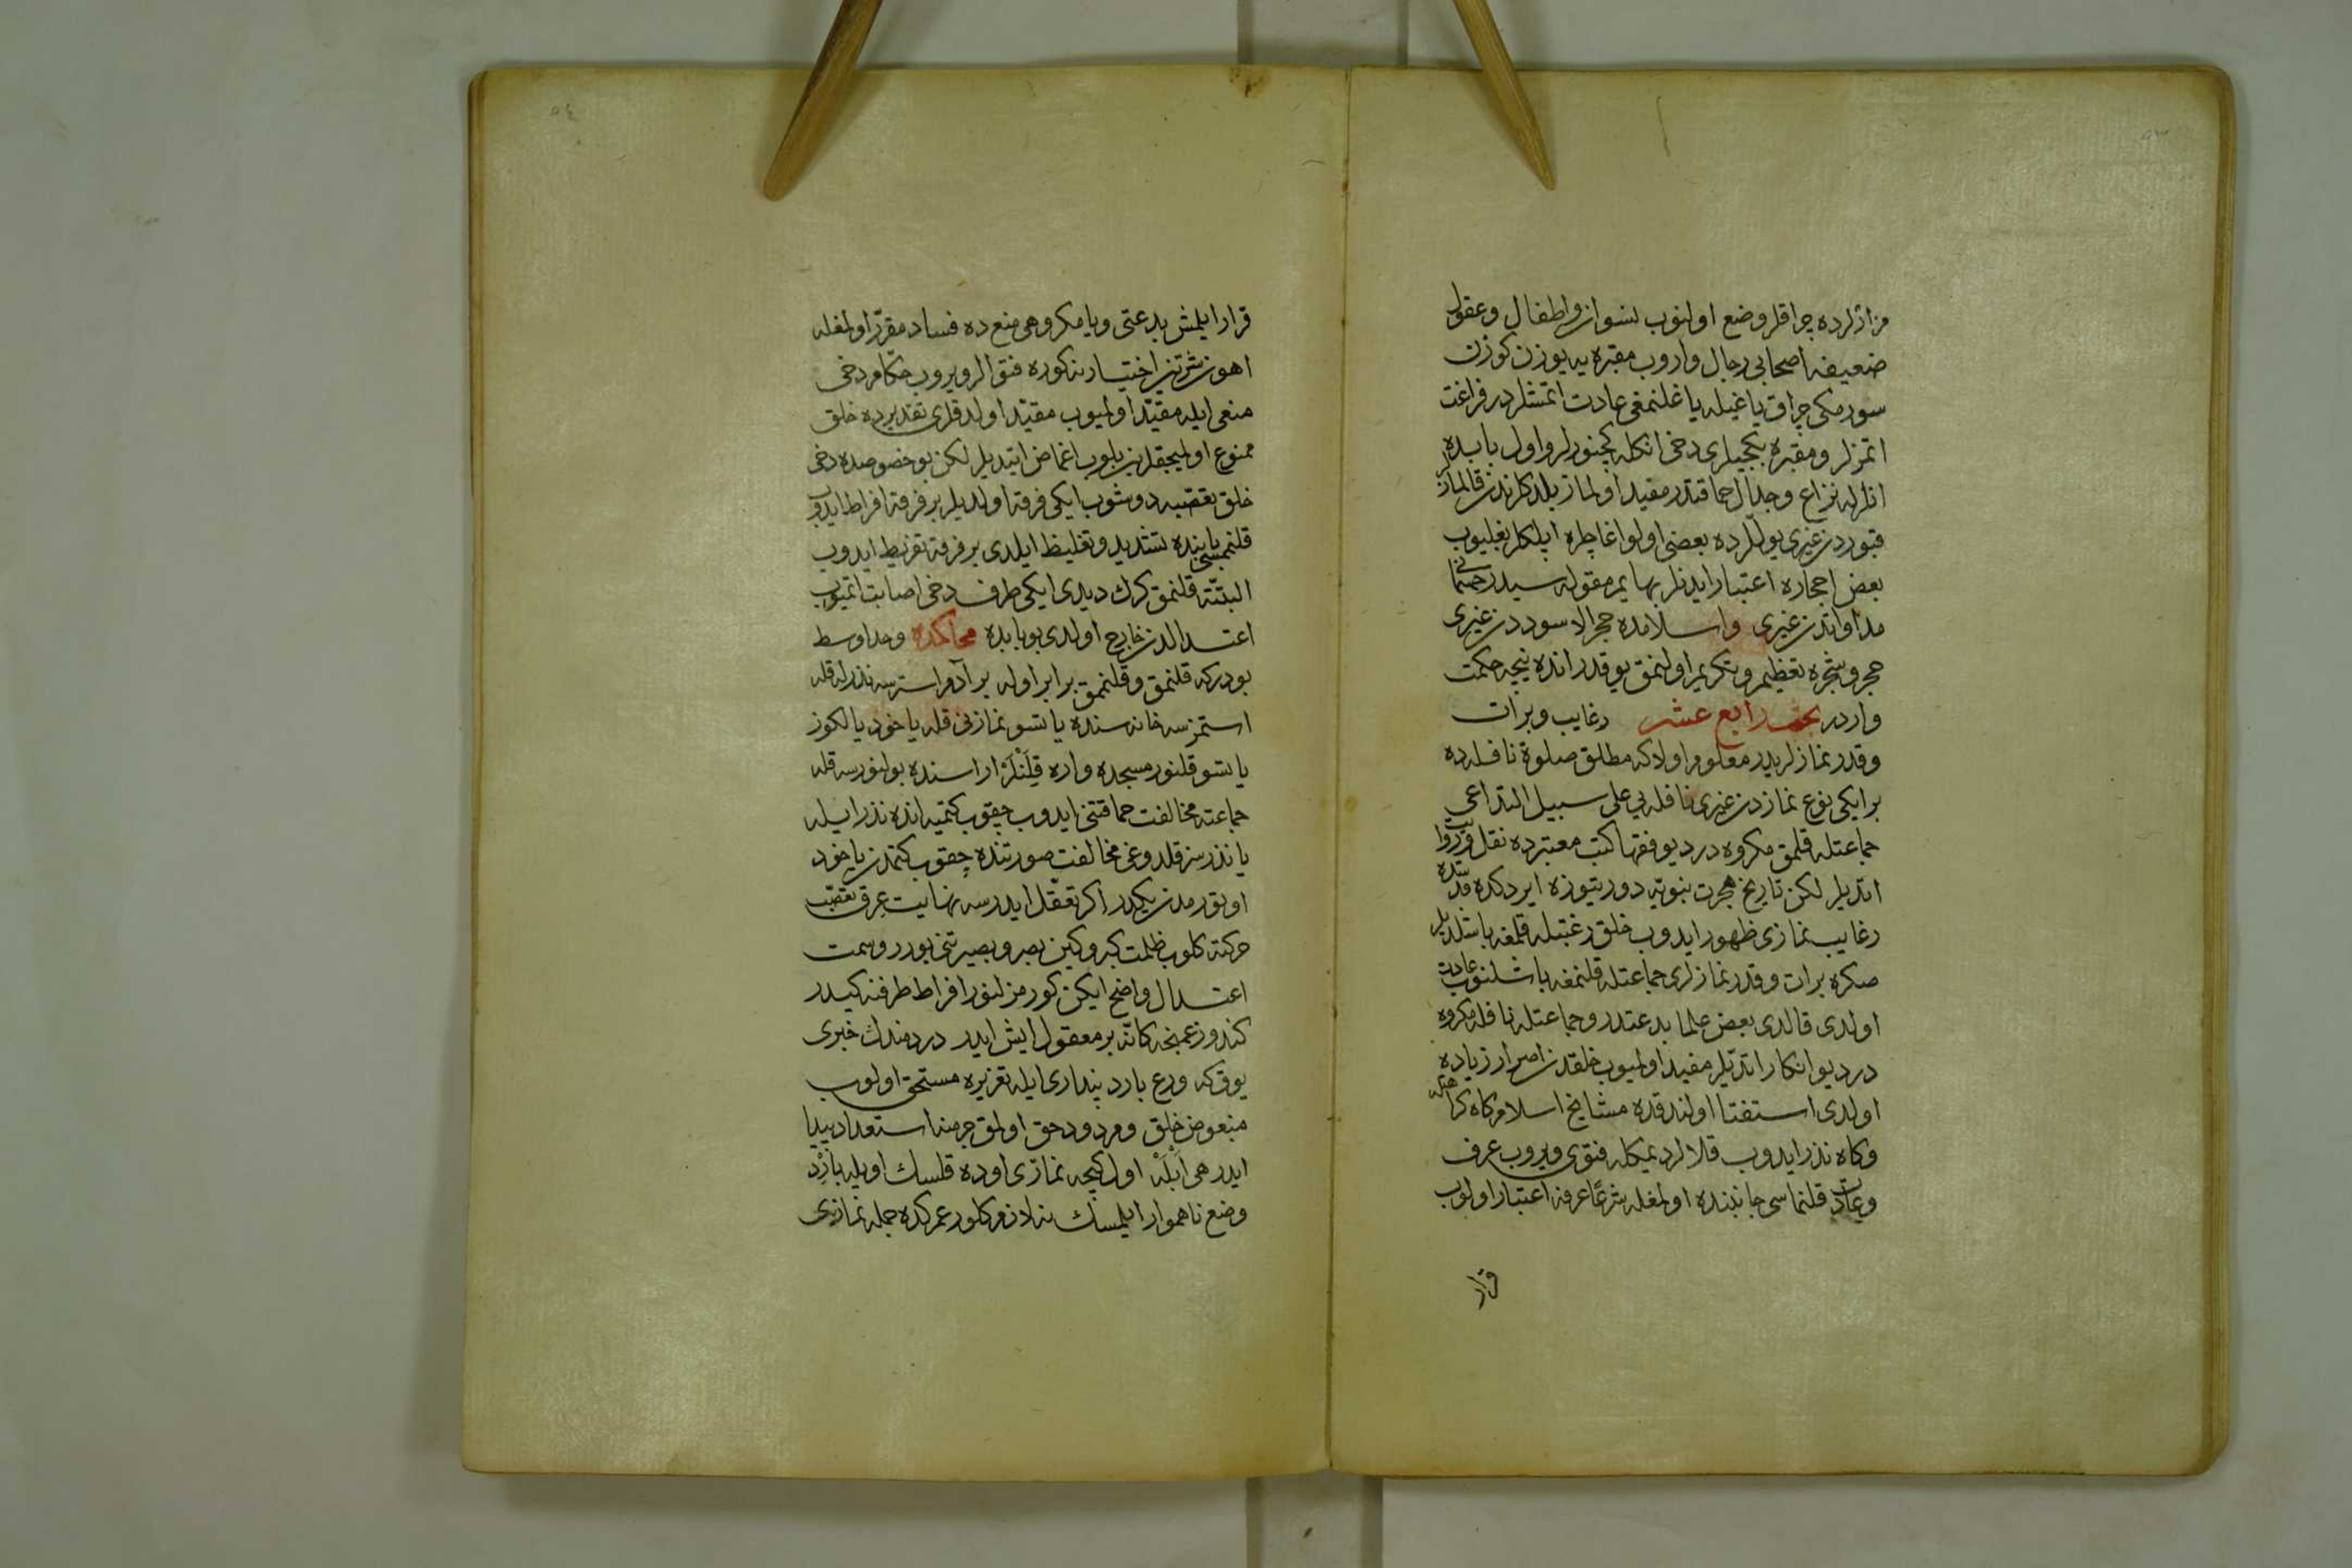 مزارلرده چراقلر وضع اولنوب نسوان واطفال وعقول
ضعيفه اصحابى رجال واروب مقبره يه يوزن كوزن
سورمكى چراق ياغيله ياغلنمغى عادت اتمشلردر فراغت
اتمزلر ومقبره بكجيلرى دخى انكله كچنورلر واول بابده
انلرله نزاع وجدال حماقتدر مقيد اولماز بلدكلرندن قالمازلر
قبوردن غيرى يوللرده بعضى اولو اغاچلره ايپلكلر بغليوب
بعض احجاره اعتبار ايدنلر بهايم مقوله سيدر جسمانى
مداواتدن غيرى واسلامده حجر الاسوددن غيرى
حجر وشجره تعظيم وتكريم اولنمق يوقدر انده نيچه حكمت
واردر بحث رابع عشر رغايب وبرات
وقدر نمازلريدر معلوم اولا كه مطلق صلوة نافله ده
بر ايكى نوع نمازدن غيرى نافله يى على سبيل التداعى
جماعتله قلمق مكروه در ديو فقها كتب معتبرده نقل وروايت
اتديلر لكن تاريخ هجرت نبويه دورتيوزه ايردكده قدسده
رغايب نمازى ظهور ايدوب خلق رغبتله قلمغه باشلديلر
صكره برات وقدر نمازلرى جماعتله قلنمغه باشلنوب عادت
اولدى قالدى بعض علما بدعتدر وجماعتله نافله مكروه
در ديو انكار اتديلر مفيد اولميوب خلقدن اصرار زياده
اولدى استفتا اولندقده مشايخ اسلام كاه كراهتله
وكاه نذر ايدوب قلالر ديمكله فتوى ويروب عرف
وعادت قلنماسى جانبنده اولمغله شرعا عرفه اعتبار اولوب
قرار
قرار ايلمش بدعتى ويا مكروهى منع ده فساد مقرر اولمغله
اهون شرين اختيار مذكوره فتوالر ويروب حكام دخى
منعى ايله مقيد اولميوب مقيد اولدقلرى تقديرده خلق
ممنوع اولميجقلرين بلوب اغماض ايتديلر لكن بو خصوصده دخى
خلق تعصبه دوشوب ايكى فرقه اولديلر بر فرقه افراط ايدوب
قلنمسى بابنده تشديد وتغليظ ايلدى بر فرقه تفريط ايدوب
البته قلنمق كرك ديدى ايكى طرف دخى اصابت اتميوب
اعتدالدن خارج اولدى بو بابده محاكمه وحد اوسط
بودركه قلنمق وقلنممق برابر اوله بر آدم استرسه نذرله قله
استمزسه خانه سنده ياتسو نمازنى قله ياخود يالكوز
ياتسو قلنور مسجده واره قلنلر اراسنده بولنورسه قله
جماعته مخالفت حماقتنى ايدوب چقوب كتميه انده نذر ايله
يا نذرسز قلدوغى مخالفت صورتنده چقوب كتمدن ياخود
اوتورمدن يكدر اكر تعقل ايدرسه نهايت عرق تعصب
حركته كلوب ظلمت كبر وكين بصر وبصيرتنى بورر وسمت
اعتدال واضح ايكن كورمزلنور افراط طرفنه كيدر
كندو زعمنجه كانه بر معقول ايش ايدر دردمندك خبرى
يوق كه ورع بارد پندارى ايله تعزيره مستحق اولوب
مبغوض خلق ومردود حق اولمق جرمنه استعداد پيدا
ايدر هى ابله اول كيجه نمازى اوده قلسك اويله بارد
وضع ناهموار ايلمسك نه لازم كلور عمركده جمله نمازيى